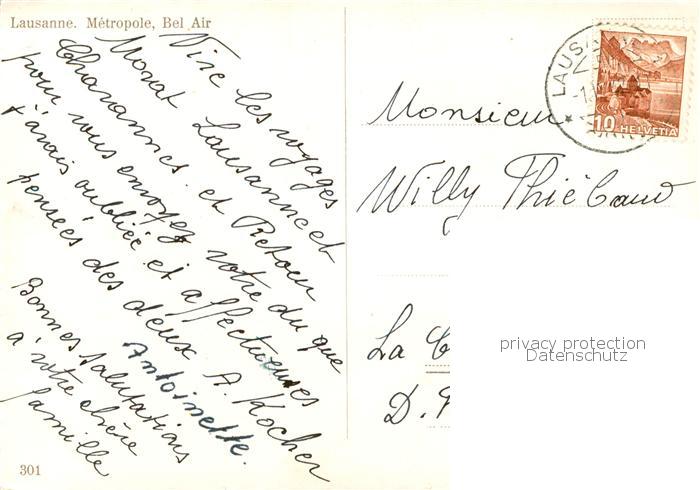 Lausanne. Métropole, Bel Air
Vive les voyages
Morat Lausanne et
Chavannes et Retour
pour vous envoyez votre du que
j'avais oubliée et affectueuses
pensées des deux A. Kocher
Antoinette.
Bonnes salutations
à votre chère
famille
301
LAUSA
10 HELVETIA
Monsieur
Willy Thiébaud
La C
D.
privacy protection
Datenschutz